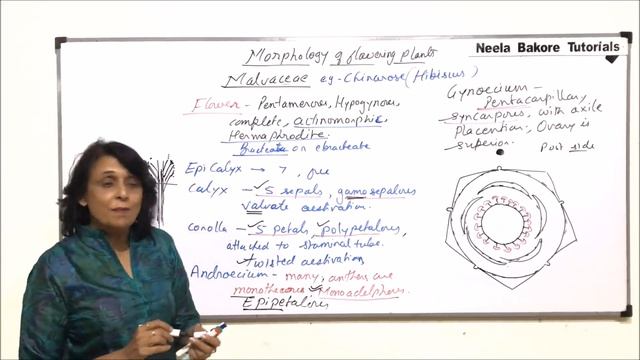 Neela Bakore Tutorials
Morphology of flowering plants
Malvaceae eg - Chinarose (Hibiscus)
Flower - Pentamerous, Hypogynous,
complete, actinomorphic,
Hermaphrodite.
Bracteate or ebracteate
Epicalyx → 7, free
Calyx - ✓5 sepals, gamosepalous
valvate aestivation.
Corolla - ✓5 petals, ✓polypetalous,
attached to staminal tube.
✓twisted aestivation
Androecium - many, anthers are
monothecous ✓Monoadelphous.
Epipetalous
Gynoecium -
Pentacarpillary,
syncarpous, with axile
Placentian, Ovary is
superior.
Post side